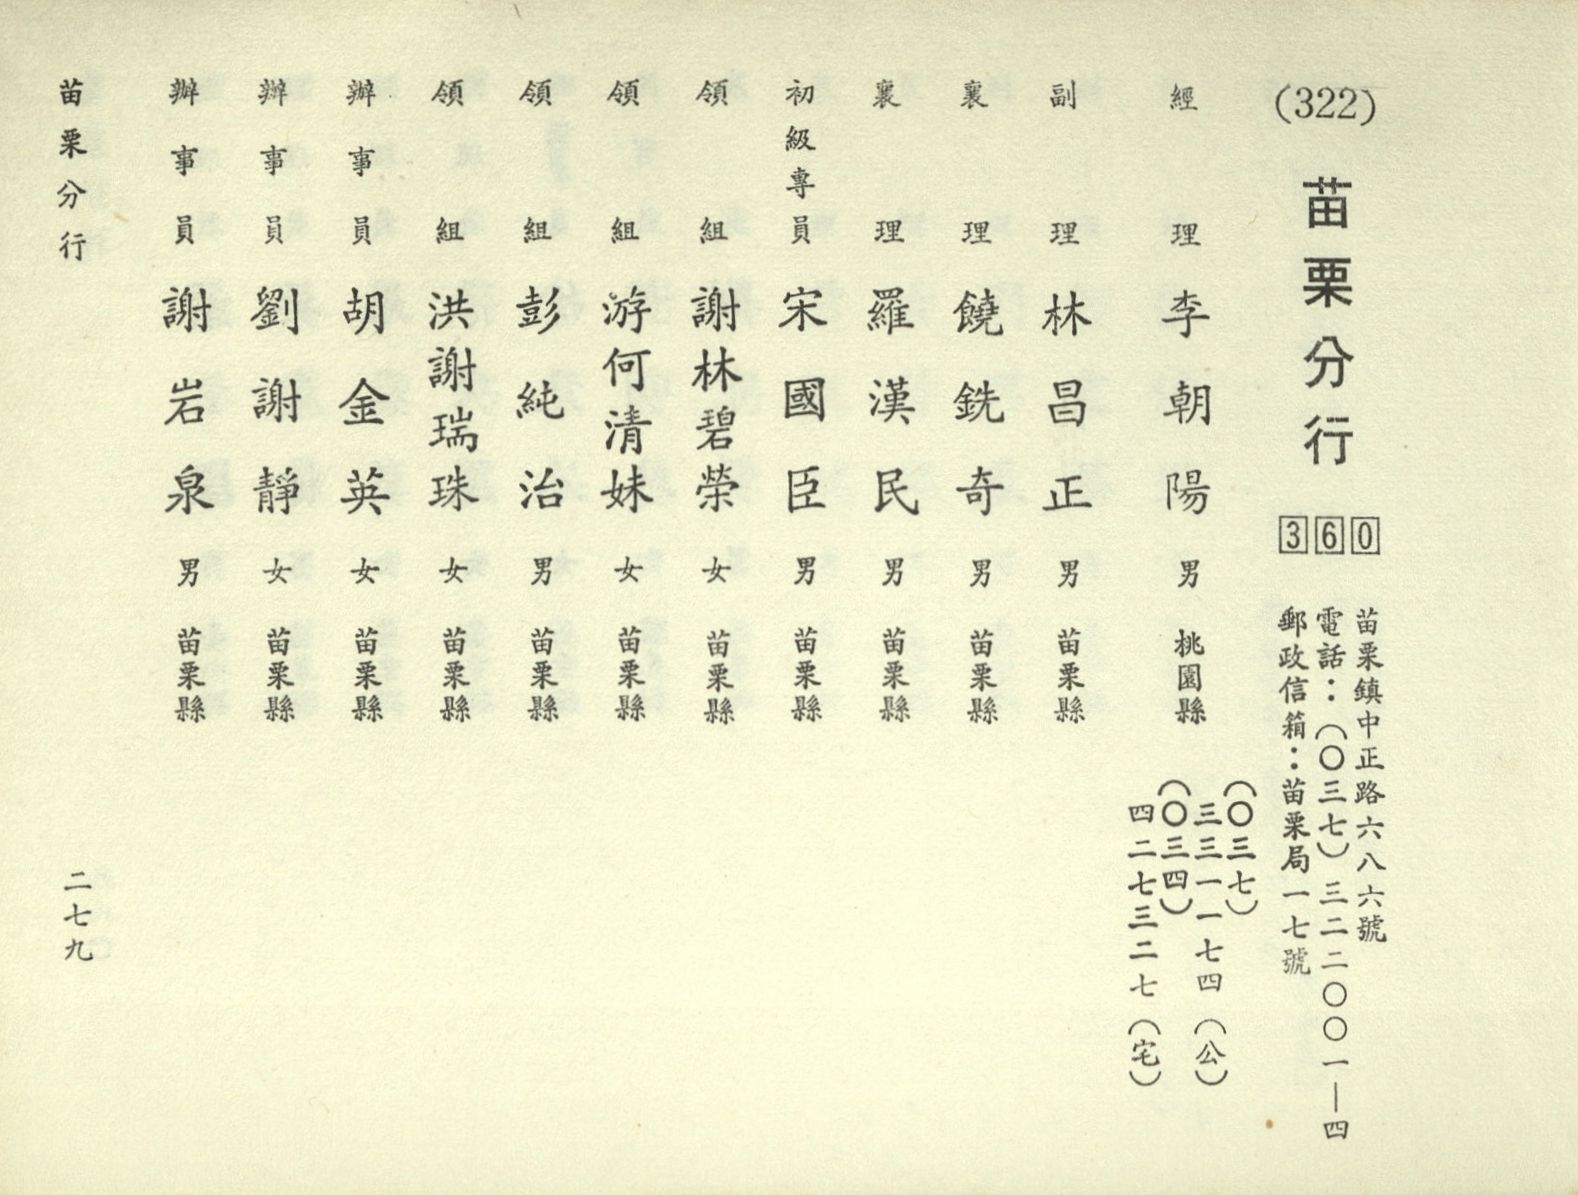 (322) 苗栗分行 360
苗栗鎮中正路六八六號
電話：(〇三七)三二二〇〇一—四
郵政信箱：苗栗局一七號
經理 李朝陽 男 桃園縣
(〇三七)
三三一一七四(公)
(〇三四)
四二七三二七(宅)
副理 林昌正 男 苗栗縣
襄理 饒銑奇 男 苗栗縣
襄理 羅漢民 男 苗栗縣
初級專員 宋國臣 男 苗栗縣
領組 謝林碧榮 女 苗栗縣
領組 游何清妹 女 苗栗縣
領組 彭純治 男 苗栗縣
領組 洪謝瑞珠 女 苗栗縣
辦事員 胡金英 女 苗栗縣
辦事員 劉謝靜 女 苗栗縣
辦事員 謝岩泉 男 苗栗縣
苗栗分行
二七九